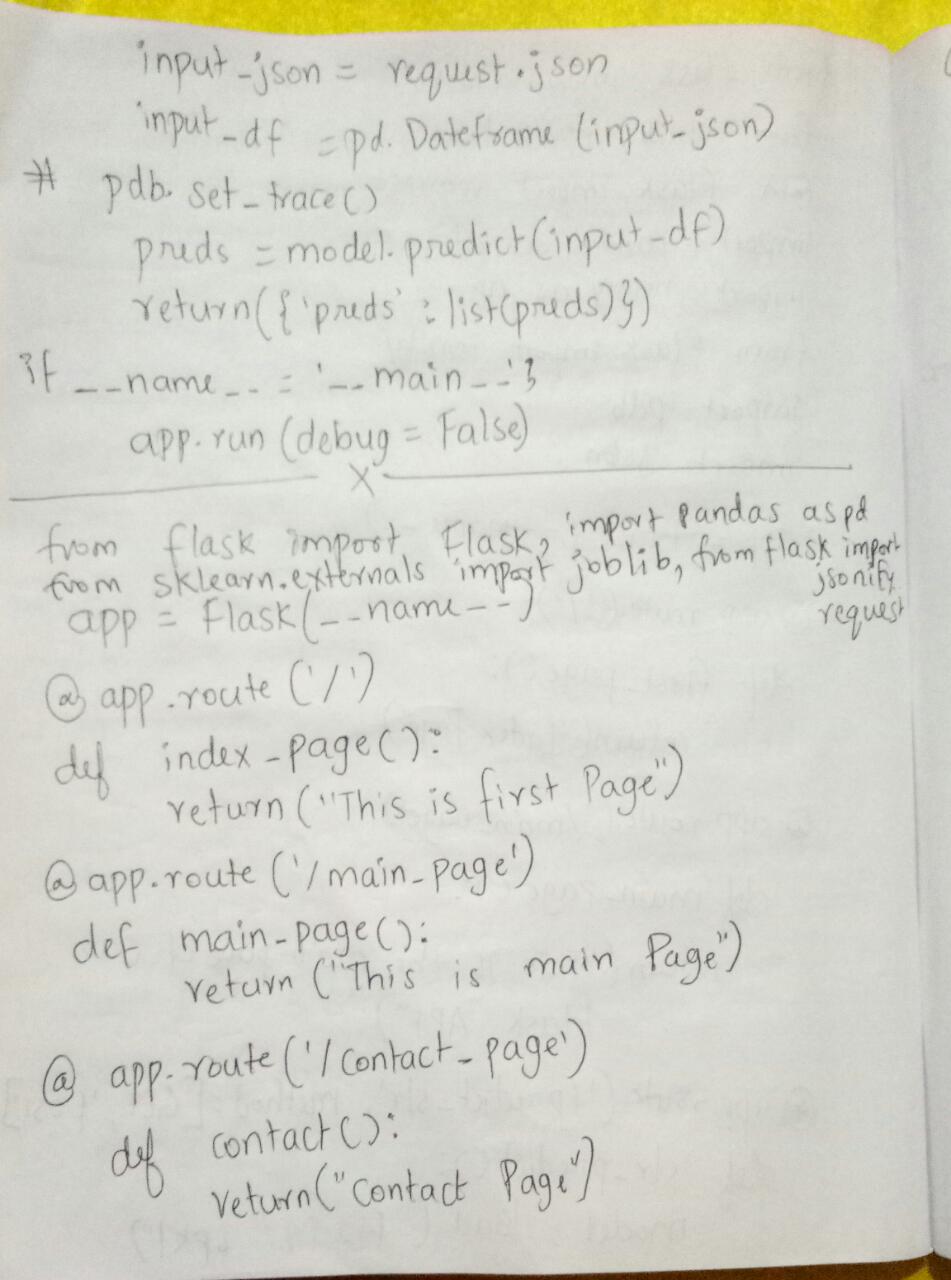 input_json = request.json
input_df = pd. Dateframe (input_json)
# pdb. set_trace()
preds = model. predict(input_df)
return({'preds' : list(preds)})
if __name__ = '__main__'}
app.run (debug = False)
X
from flask import Flask, import pandas as pd
from sklearn.externals import joblib, from flask import jsonify
request
app = Flask(__name__)
@ app.route ('/')
def index_page():
return ("This is first Page")
@ app.route ('/main_page')
def main_page():
return ("This is main Page")
@ app.route ('/contact_page')
def contact():
return("Contact Page")